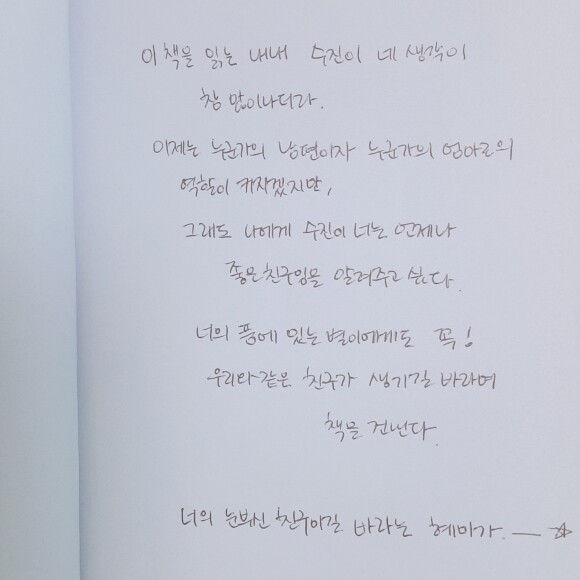 이 책을 읽는 내내 수진이 네 생각이
참 많이나더라.
이제는 누군가의 남편이자 누군가의 엄마로의
역할이 커지겠지만,
그래도 나에게 수진이 너는 언제나
좋은친구임을 알려주고 싶다.
너의 품에 있는 별이에게도 꼭!
우리와 같은 친구가 생기길 바라며
책을 건넨다.
너의 눈부신 친구이길 바라는 혜미가.